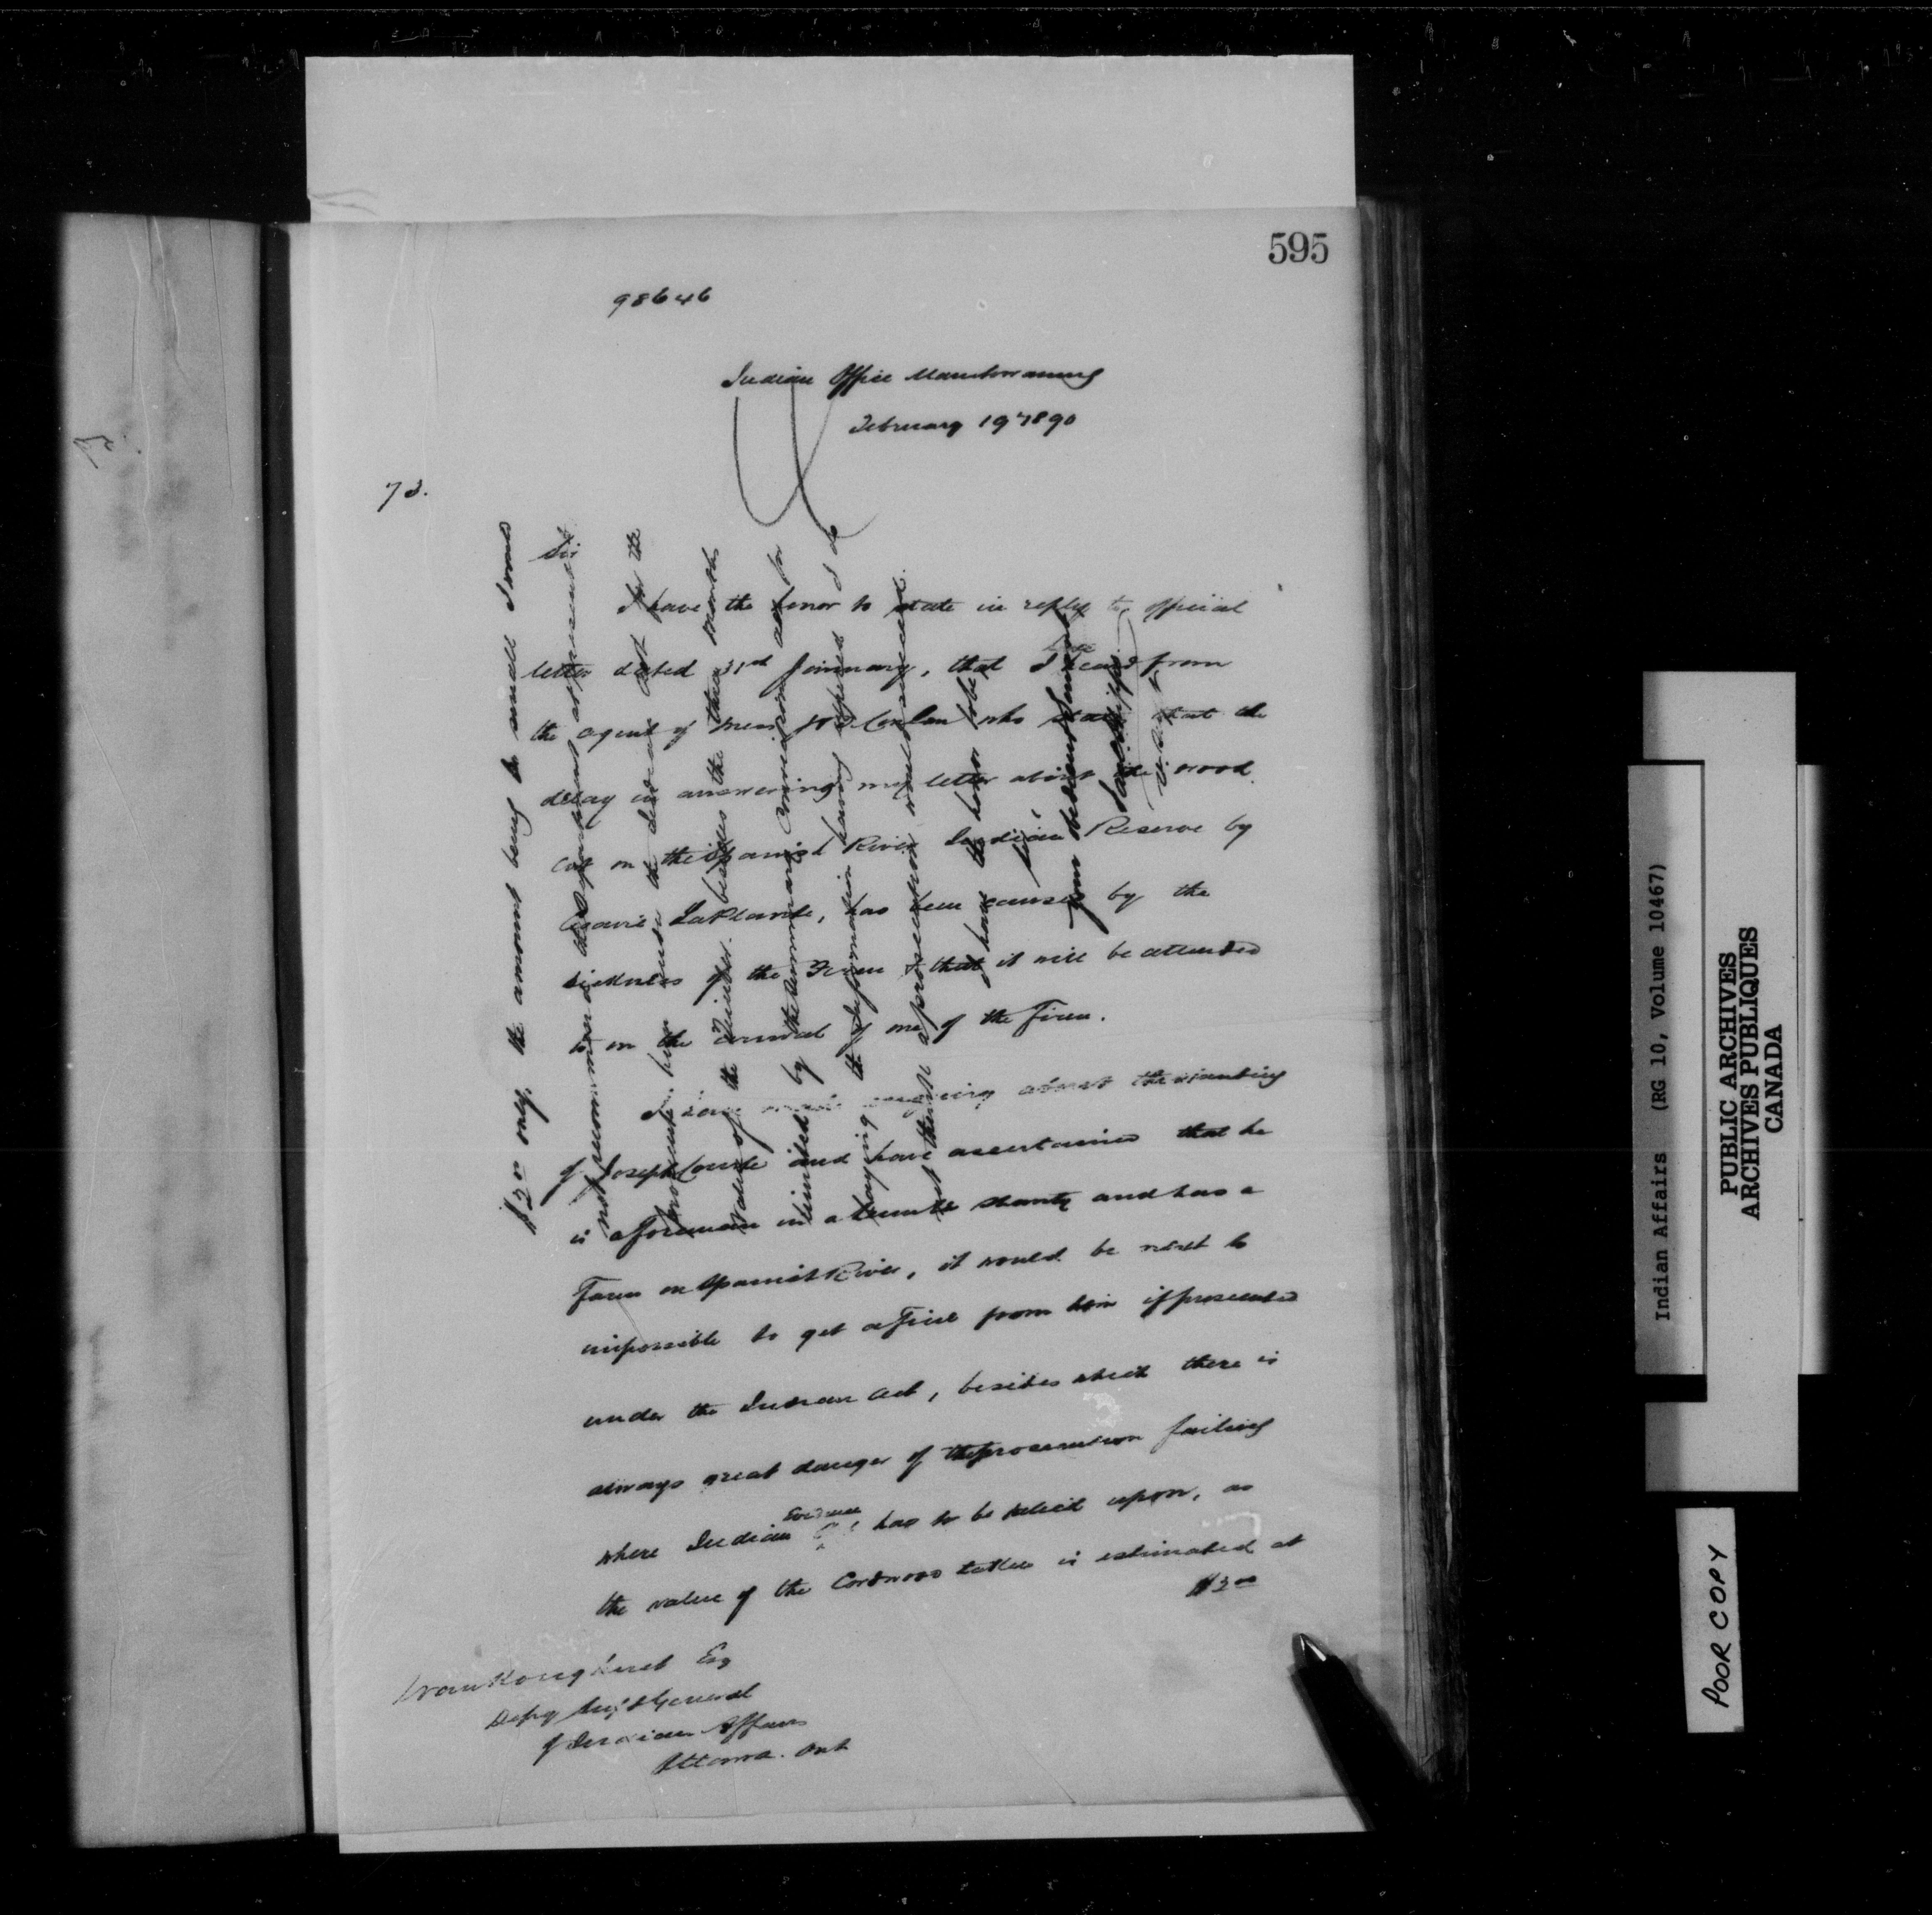 595
98646
Indian Office Manitowaning
February 19 1890
73.
Sir
I have the honor to state in reply to official
letter dated 31st January, that I have heard from
the agent of Mess Conlon who state that the
delay in answering my letter about the wood
cut on the Spanish River Indian Reserve by
LaPlante, has been caused by the
sickness of the Firm & that it will be attended
to on the arrival of one of the Firm.
I have made enquiry about the standing
of Joseph and have ascertained that he
is a foreman in a shanty and has a
Farm on Spanish River, it would be next to
impossible to get a Fine from him if prosecuted
under the Indian Act, besides which there is
always great danger of the prosecution failing
where Indian Evidence has to be relied upon, as
the value of the Cordwood taken is estimated at
$3.00
VanKoughnet Esq
Depy Supt General
of Indian Affairs
Ottawa. Ont
only, the amount being so small I would
not recommend the Department
prosecute him under the Indian Act for the
value of the Timber. besides the three months
limited by the Summary Convictions act for
laying the Information having expired I do
not think a prosecution would succeed.
I have the honor to be
Sir
your obedient Servant
Jas C Phipps
Indian Affairs (RG 10, Volume 10467)
PUBLIC ARCHIVES
ARCHIVES PUBLIQUES
CANADA
POOR COPY